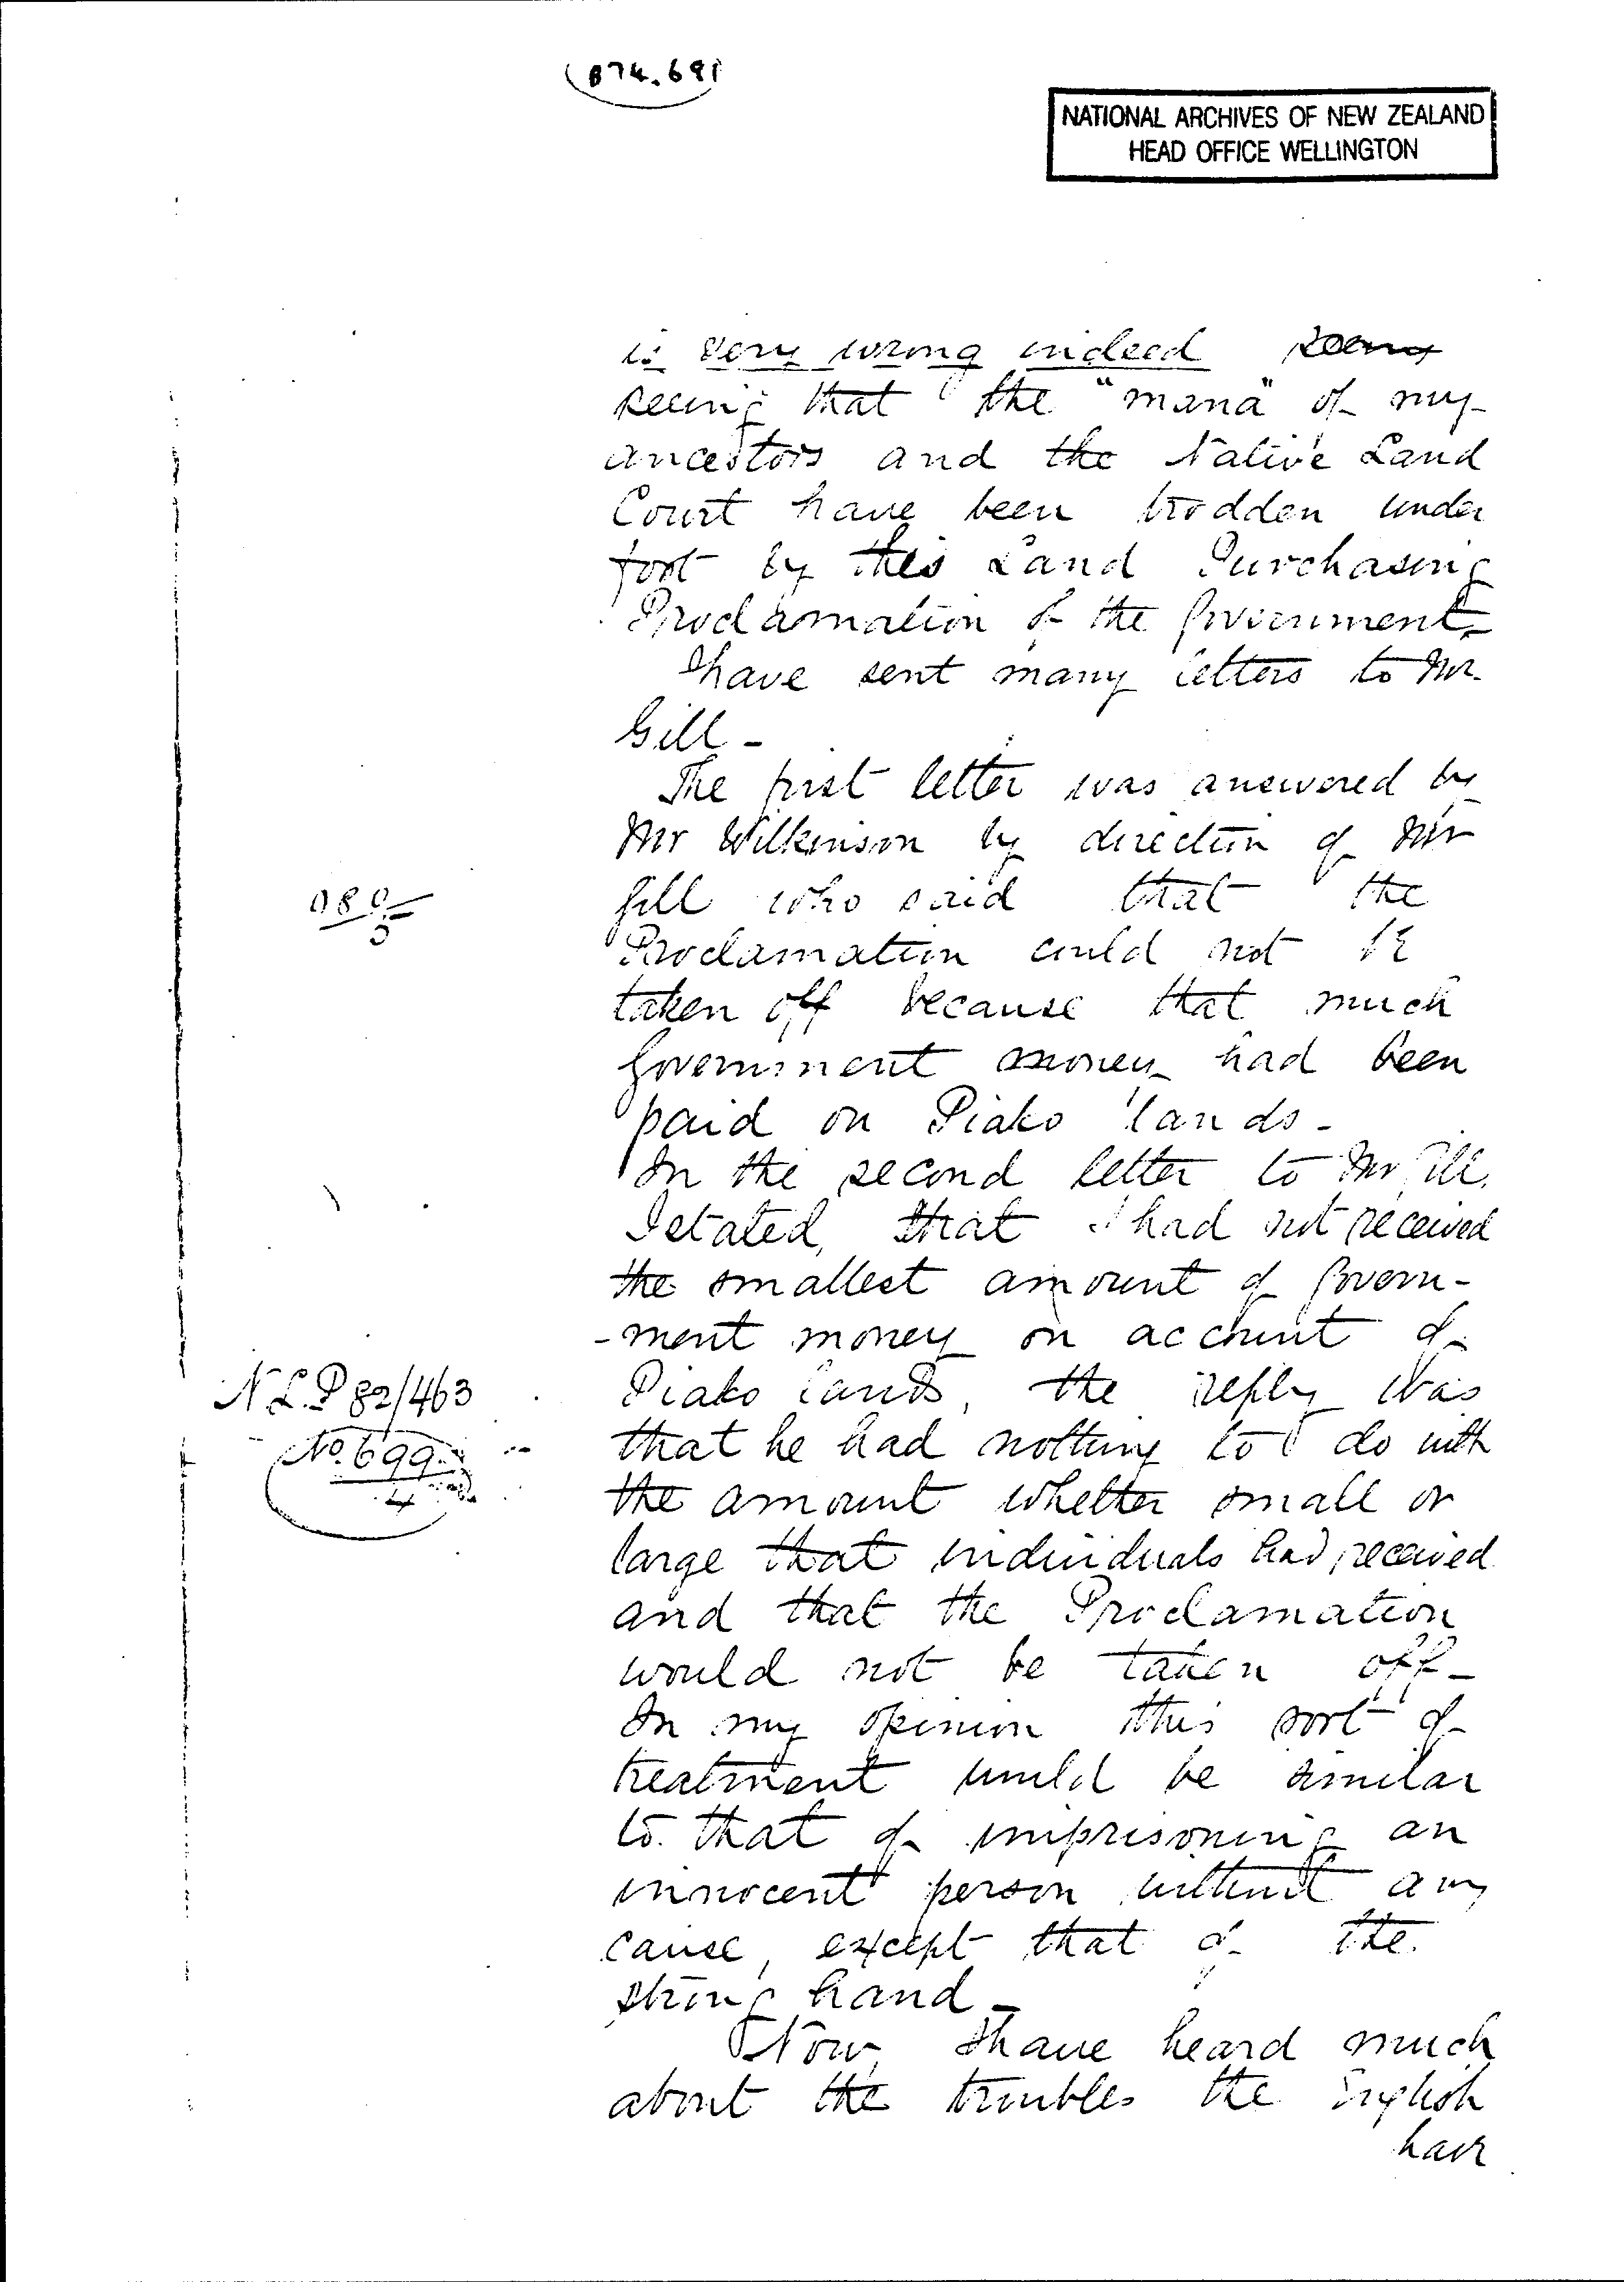 874.691
NATIONAL ARCHIVES OF NEW ZEALAND
HEAD OFFICE WELLINGTON
is very wrong indeed seeing
seeing that the "mana" of my
ancestors and the Native Land
Court have been trodden under
foot by this Land Purchasing
Proclamation of the Government.
I have sent many letters to Mr.
Gill -
The first letter was answered by
Mr Wilkinson by direction of Mr
Gill who said that the
Proclamation could not be
taken off because that much
Government money had been
paid on Piako lands -
In the second letter to Mr Gill.
I stated, that I had not received
the smallest amount of Govern-
-ment money on account of
Piako lands, the reply was
N.L.P 82/463
that he had nothing to do with
No. 699
4
the amount whether small or
large that individuals had received
and that the Proclamation
would not be taken off -
In my opinion this sort of
treatment would be similar
to that of imprisoning an
innocent person without any
cause, except that of the
strong hand -
Now, I have heard much
about the troubles the English
have